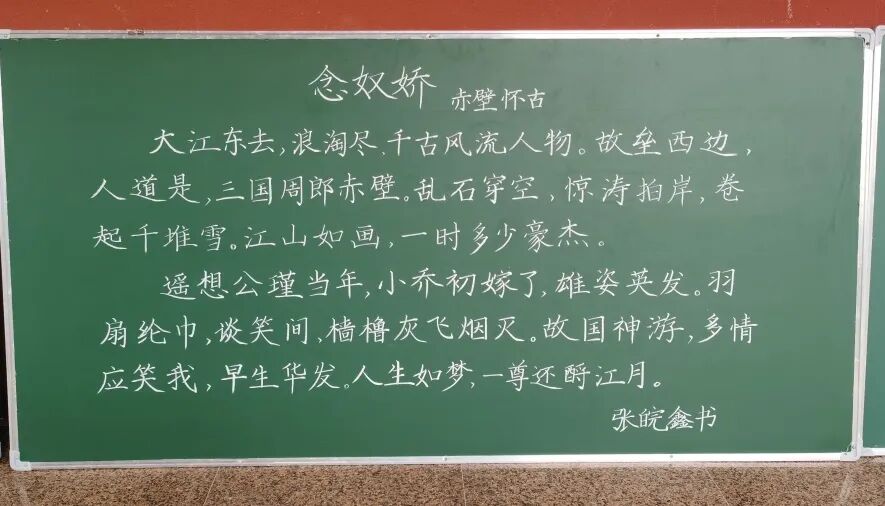 念奴娇 赤壁怀古
大江东去,浪淘尽、千古风流人物。故垒西边,
人道是,三国周郎赤壁。乱石穿空,惊涛拍岸,卷
起千堆雪。江山如画,一时多少豪杰。
遥想公瑾当年,小乔初嫁了,雄姿英发。羽
扇纶巾,谈笑间、樯橹灰飞烟灭。故国神游,多情
应笑我,早生华发。人生如梦,一尊还酹江月。
张皖鑫书